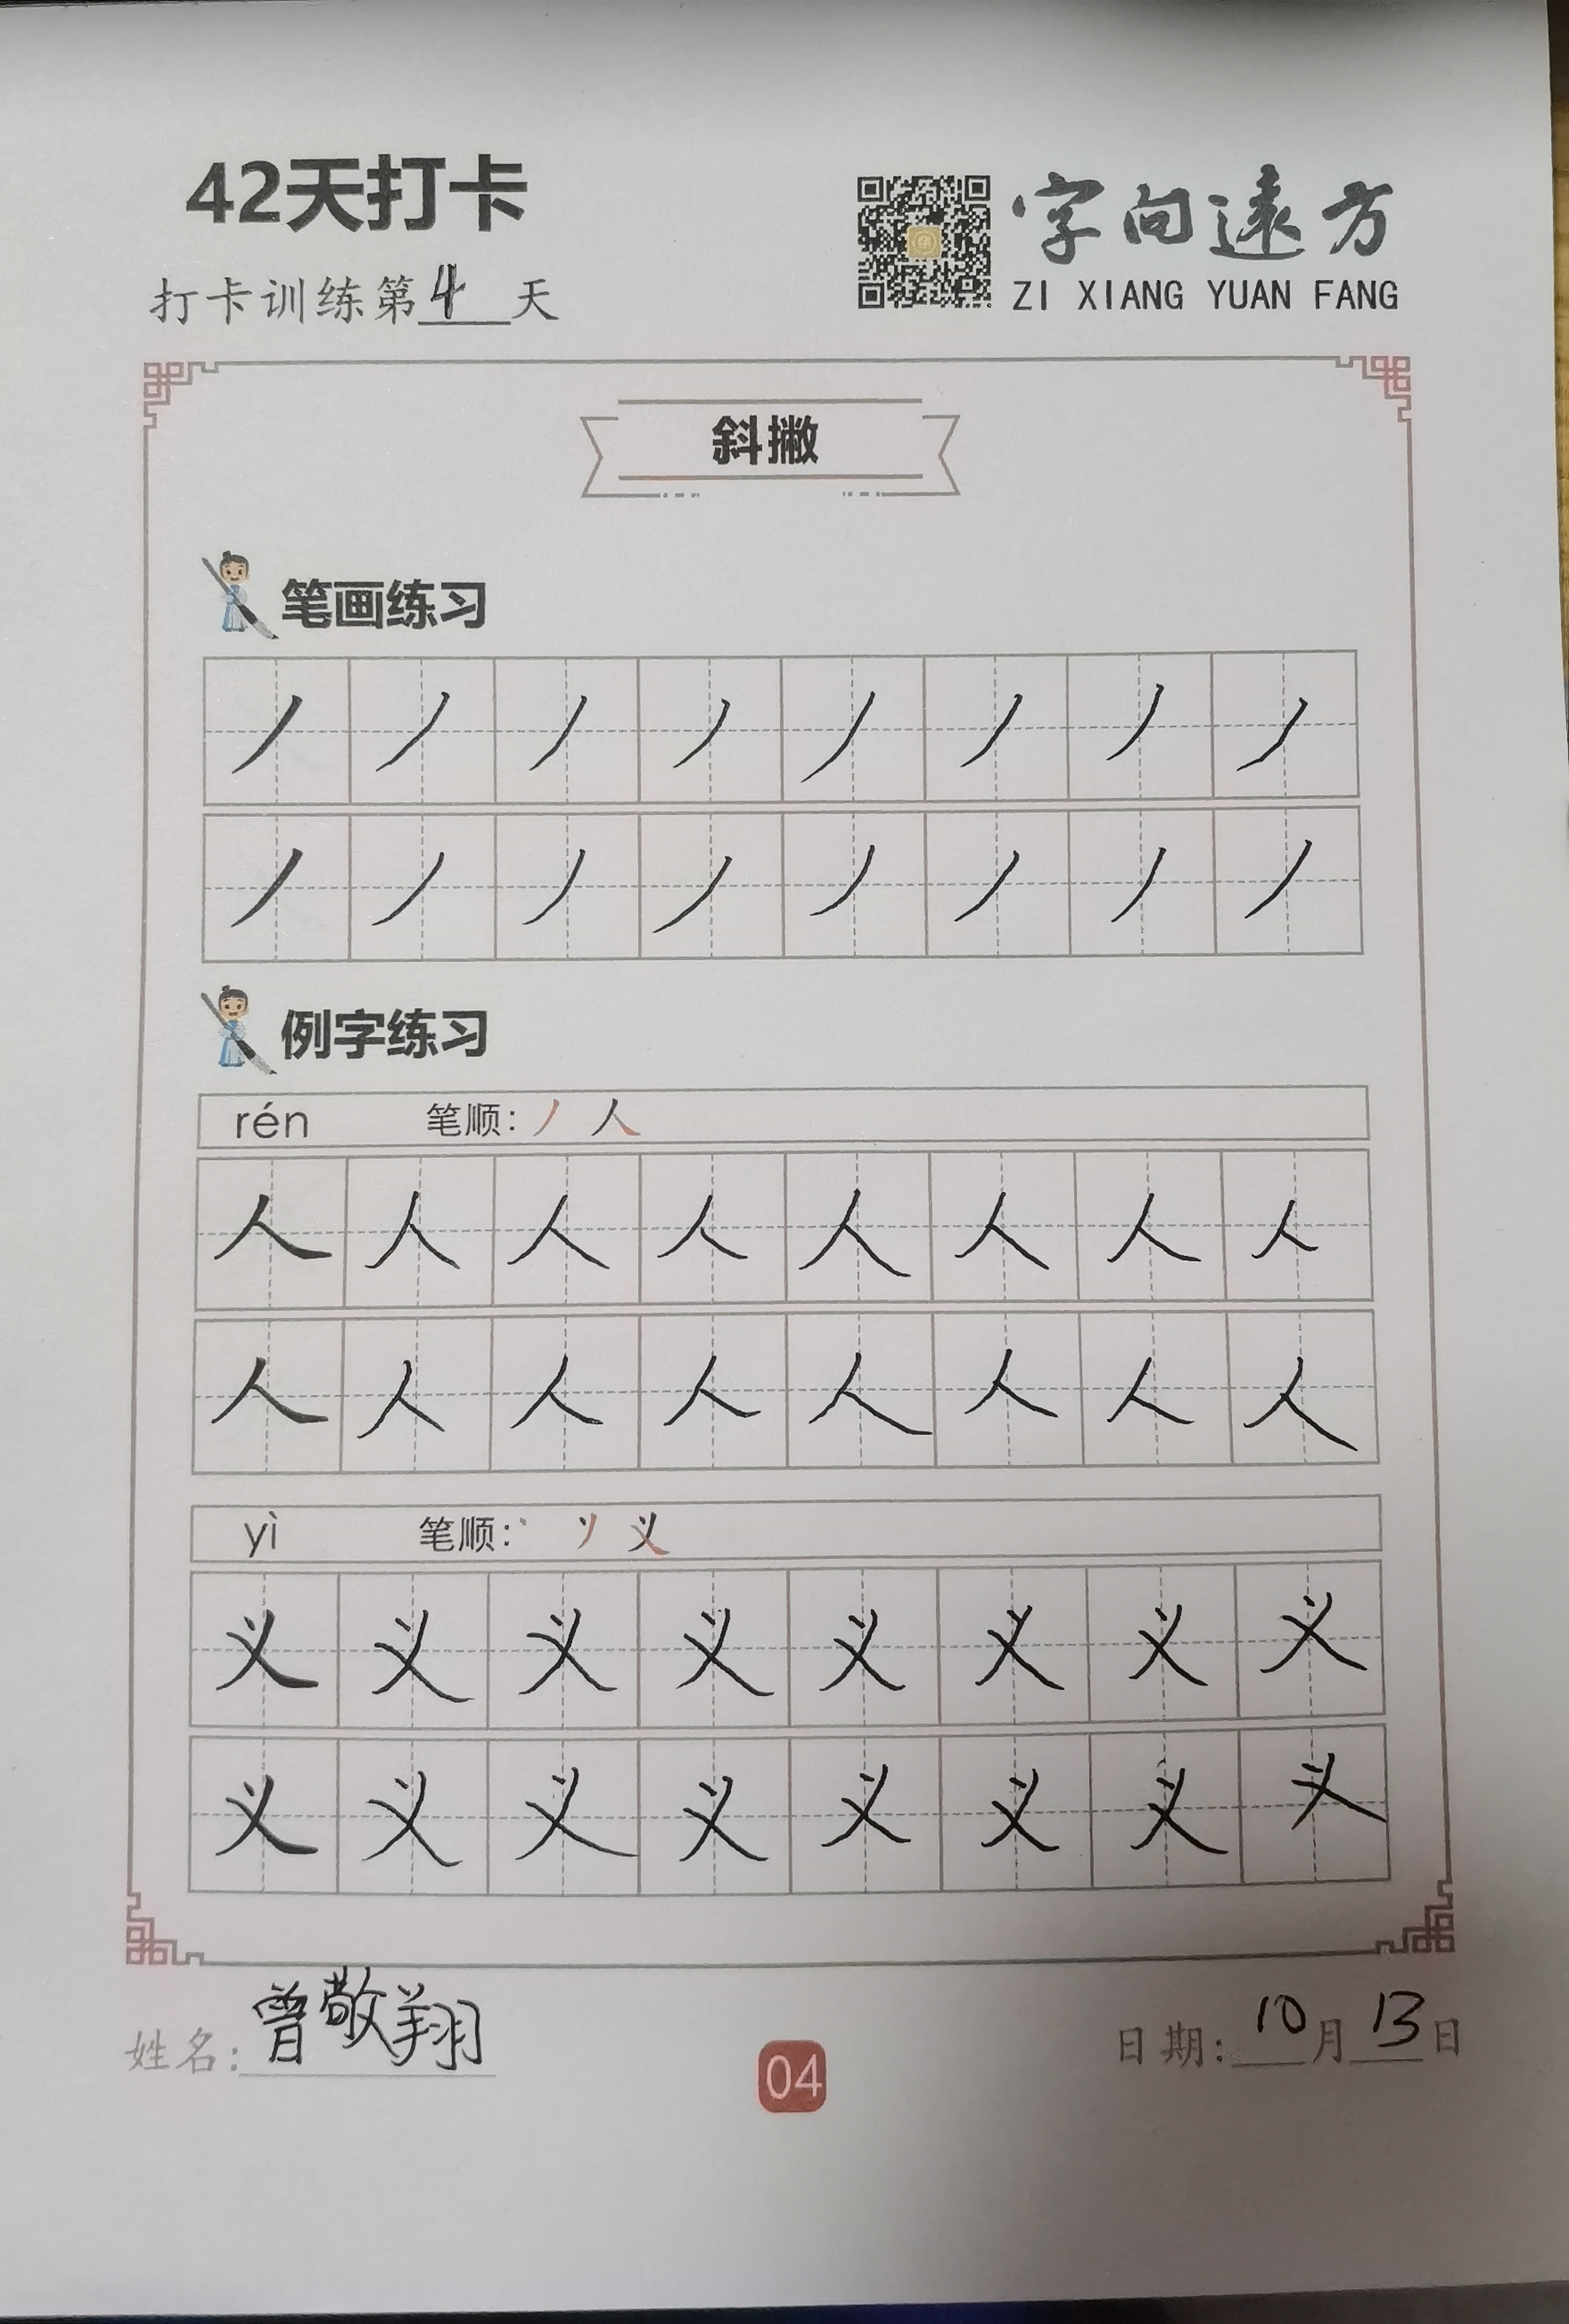 42天打卡
打卡训练第4天
字向遠方
ZI XIANG YUAN FANG
斜撇
笔画练习
丿 丿 丿 丿 丿 丿 丿 丿
丿 丿 丿 丿 丿 丿 丿 丿
例字练习
rén 笔顺: 丿 人
人 人 人 人 人 人 人 人
人 人 人 人 人 人 人 人
yì 笔顺: 丶 丷 义
义 义 义 义 义 义 义 义
义 义 义 义 义 义 义 义
姓名: 曾敬翔
04
日期: 10月13日